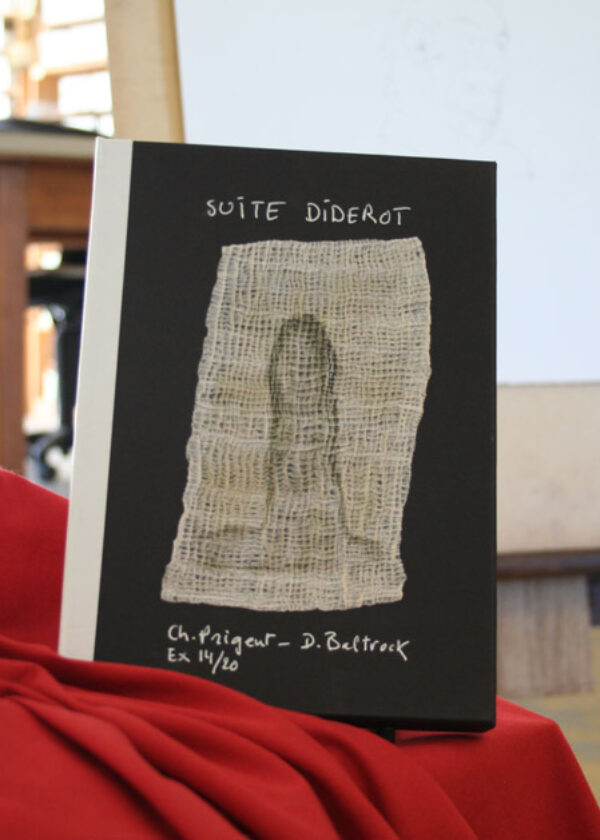 SUiTE DiDEROT
Ch. Prigent – D. Baltrock
Ex 14/20